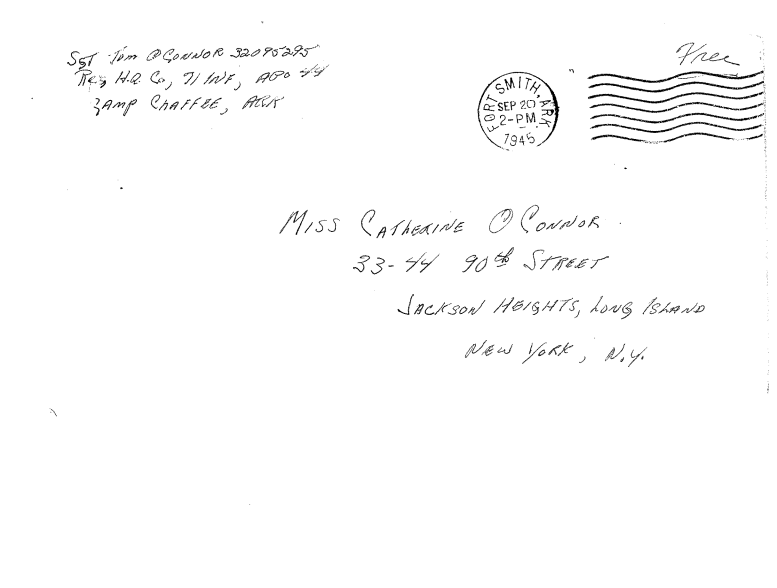 Sgt Tom O'Connor 32095295
Reg H.Q. Co, 71 INF, APO 44
Camp Chaffee, ARK
Free
FORT SMITH, ARK.
SEP 20
2-PM
1945
Miss Catherine O'Connor
33-44 90th Street
Jackson Heights, Long Island
New York, N.Y.